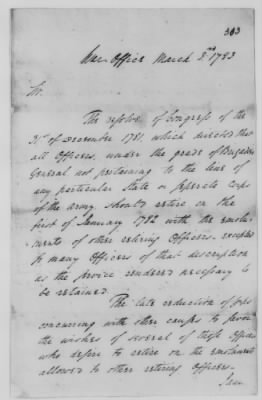 303
War Office March 3rd 1783
Sir.
The resolve of Congress of the
31st of December 1781, which directed that
all Officers, under the grade of Brigadier
General not pertaining to the line of
any particular State or seperate Corps
of the army should retire on the
first of January 1782 with the emolu-
ments of other retiring Officers, excepted
so many Officers of that description
as the service rendered necessary to
be retained
The late reduction of
concurring with other causes to
the wishes of several of those Officers
who desire to retire on the emoluments
allowed to other retiring Officers.